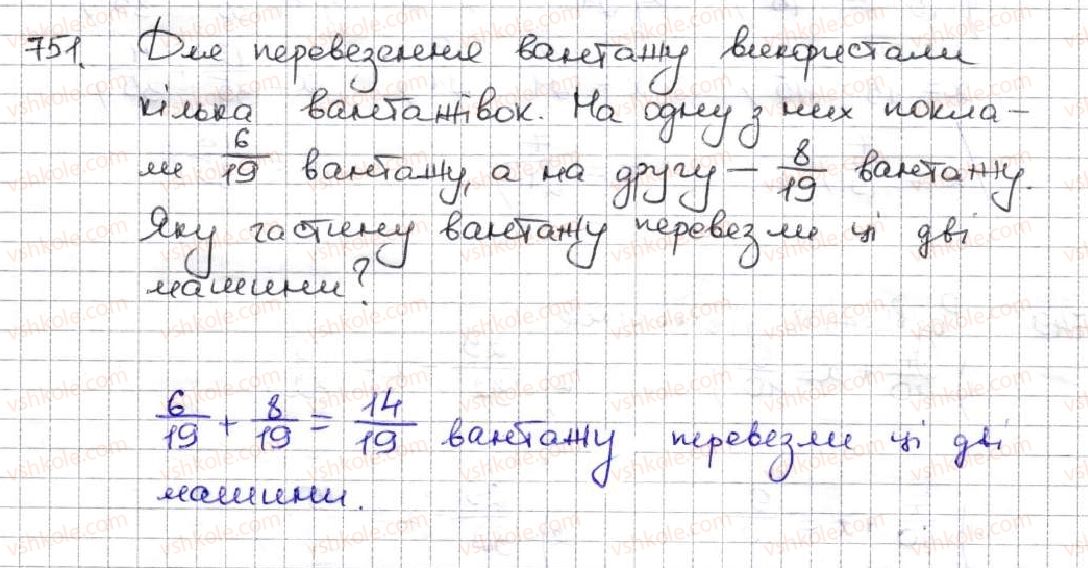 751. Для перевезення вантажу використали
кілька вантажівок. На одну з них покла-
ли 6/19 вантажу, а на другу — 8/19 вантажу.
Яку частину вантажу перевезли ці дві
машини?
6/19 + 8/19 = 14/19 вантажу перевезли ці дві
машини.